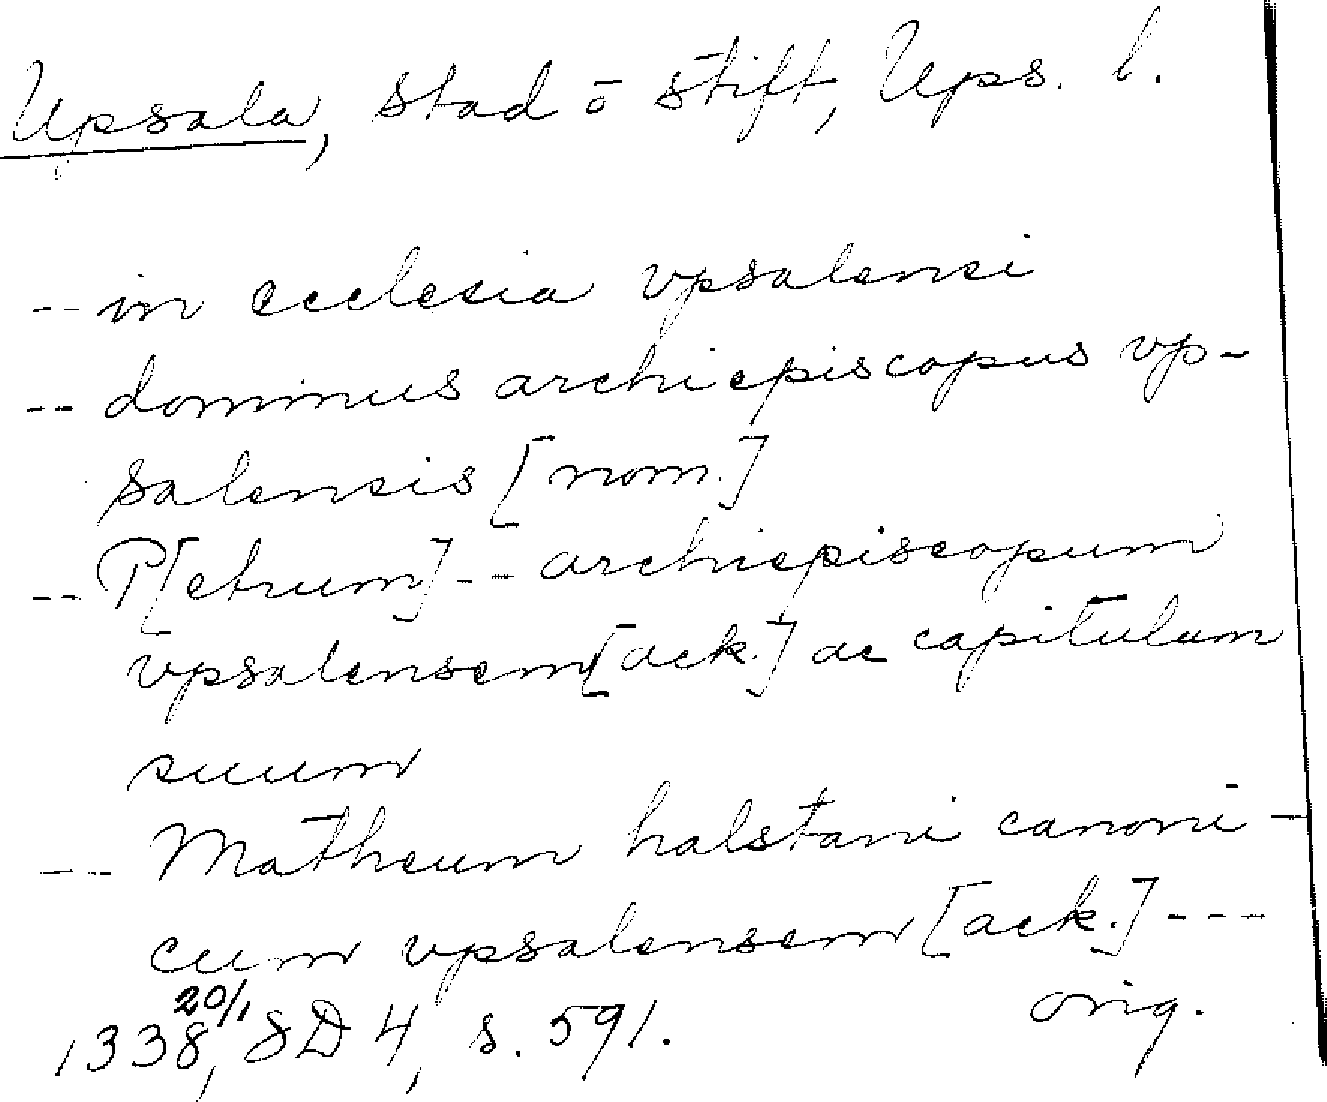 Upsala, stad o stift, Ups. l.
-- in ecclesia vpsalensi
-- dominus archiepiscopus vp-
salensis [nom.]
-- P[etrum] -- archiepiscopum
vpsalensem [ack.] ac capitulum
suum
-- Matheum halstani canoni-
cum vpsalensem [ack.] ---
1338 20/1, SD 4, s. 591. orig.